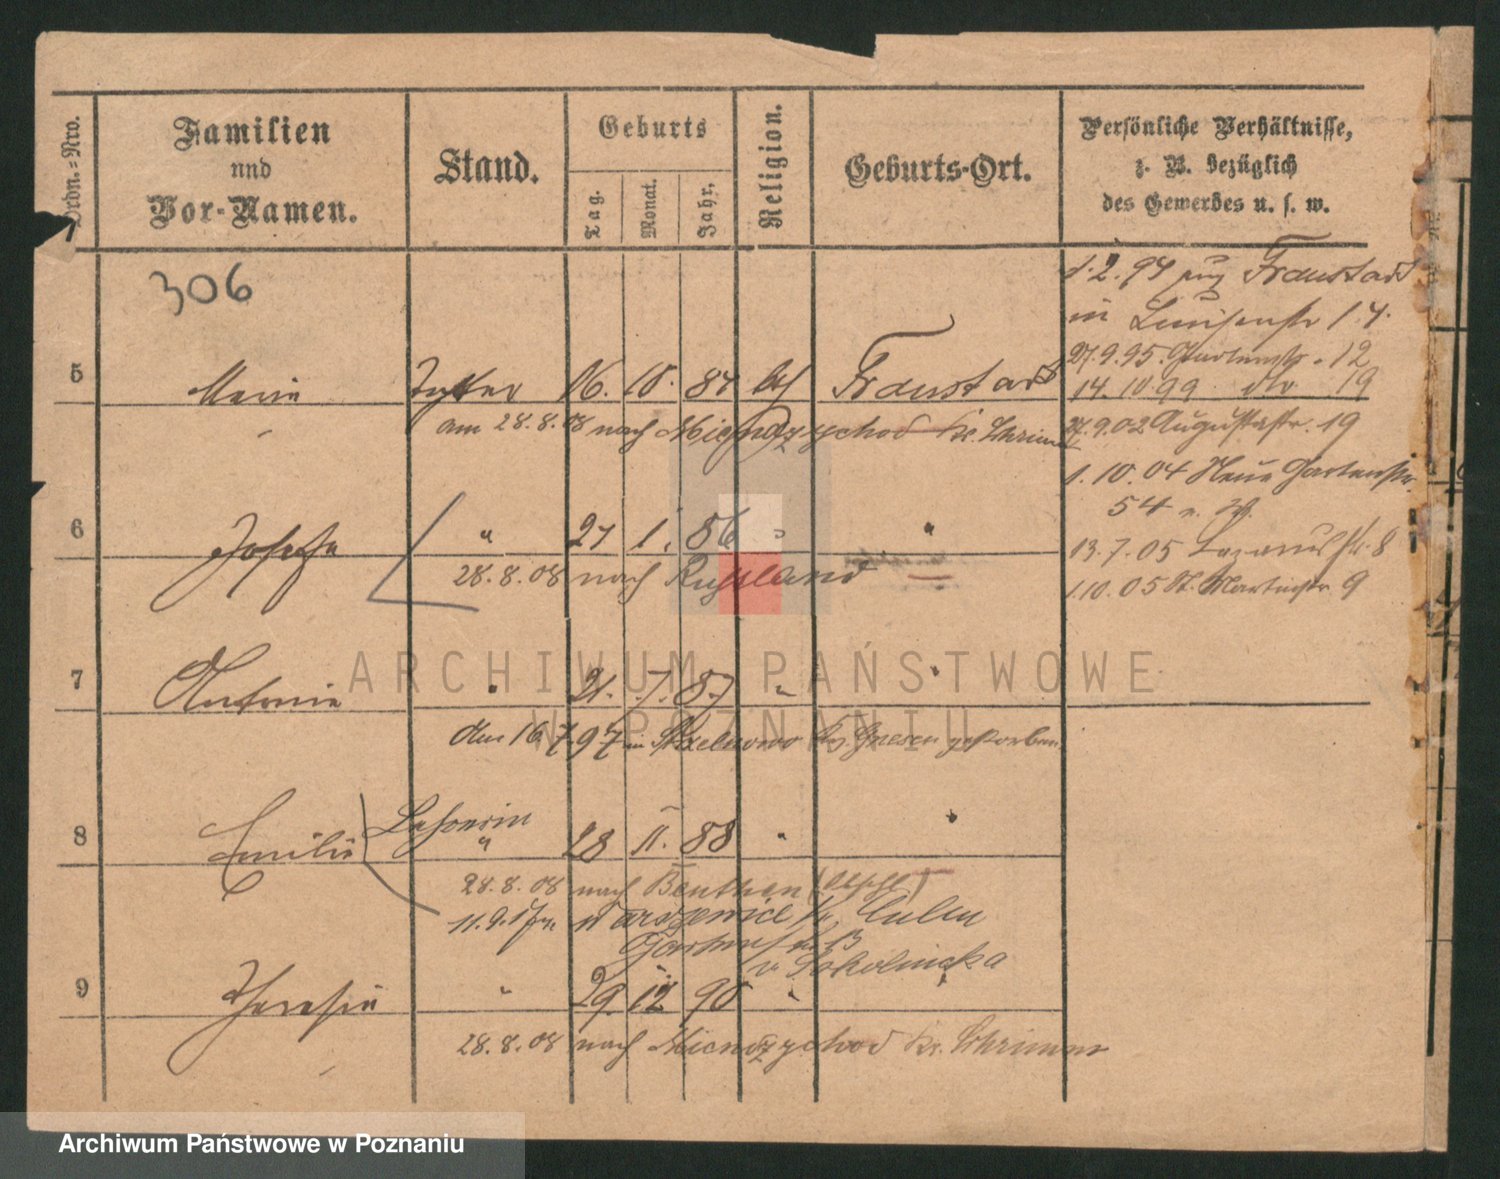 Ordn.=Nro.
Familien
und
Vor-Namen.
Stand.
Geburts
Tag.
Monat.
Jahr.
Religion.
Geburts-Ort.
Persönliche Verhältnisse,
z. B. bezüglich
des Gewerbes u. s. w.
306
1.2.94 Fraustadt
in Luisenstr 14.
27.9.95. Gartenstr. 12
14.10.99 dto 19
5 Marie 16. 10. 84 Fraustadt
am 28.8.08 nach Miendzychod Kr. Schrimm
27.9.02 Augustastr. 19
1.10.04 Neue Gartenstr.
54
6 Josepha " 27 1. 86 " "
13.7.05 Lazarusstr. 8
28.8.08 nach Russland
1.10.05 St. Martinstr. 9
7 Antonie " 21. 7. 87 " "
den 16.7.97 in Gnesen gestorben
8 Emilie Lehrerin " 28 II. 88 " "
28.8.08 nach Beuthen
11.9.17 Warszewice Kr. Culm
Sokolnicka
9 Theresia " 29. 12 90 " "
28.8.08 nach Miendzychod Kr. Schrimm
ARCHIWUM PAŃSTWOWE
W POZNANIU
Archiwum Państwowe w Poznaniu